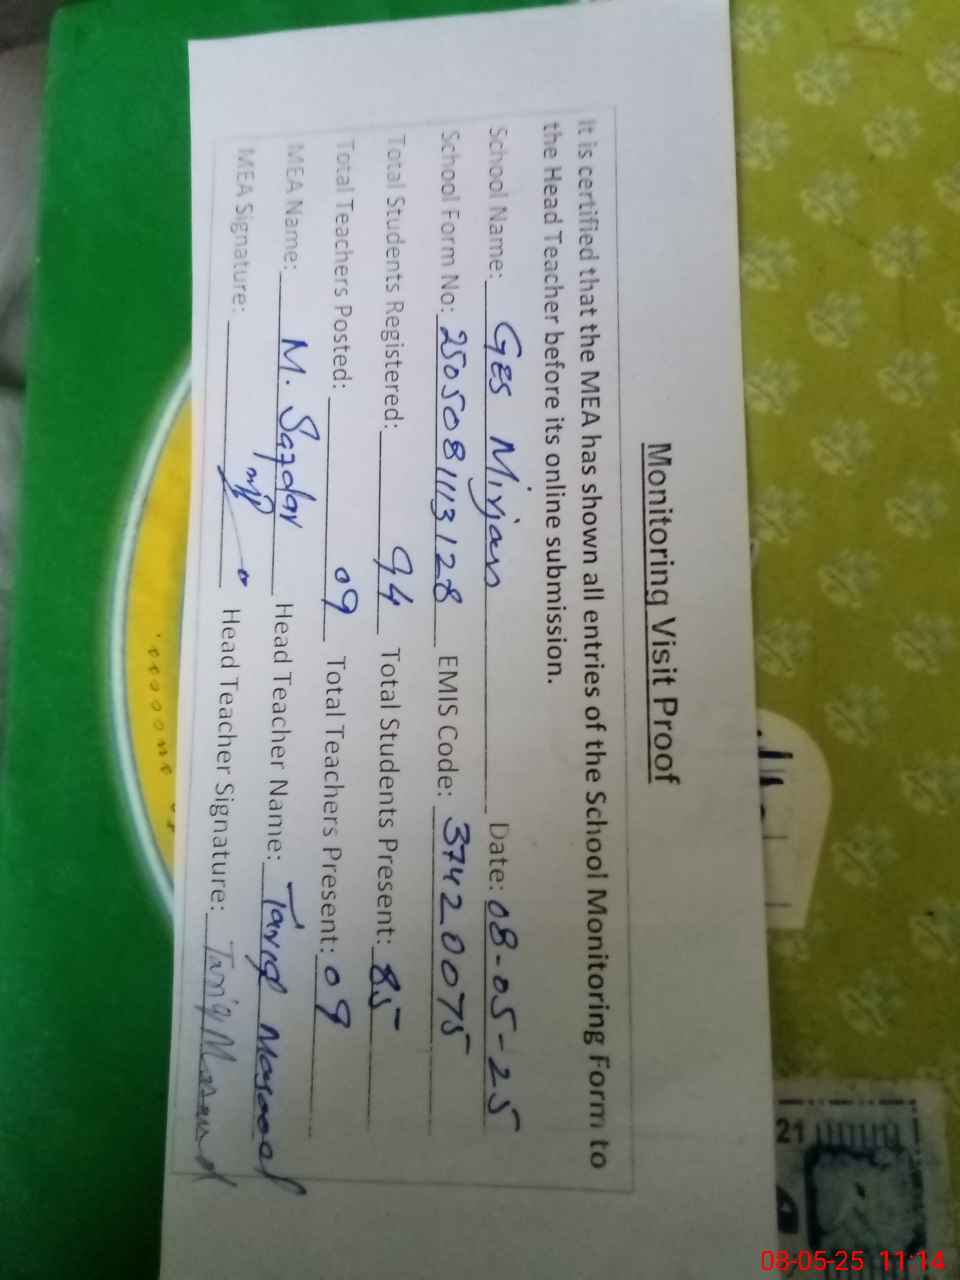 Monitoring Visit Proof
It is certified that the MEA has shown all entries of the School Monitoring Form to
the Head Teacher before its online submission.
School Name: GES Mirjan Date: 08-05-25
School Form No: 250508113128 EMIS Code: 37420075
Total Students Registered: 94 Total Students Present: 85
Total Teachers Posted: 09 Total Teachers Present: 09
MEA Name: M. Safdar Head Teacher Name: Tariq Masood
MEA Signature: Head Teacher Signature: Tariq Masood
21
08-05-25 11:14